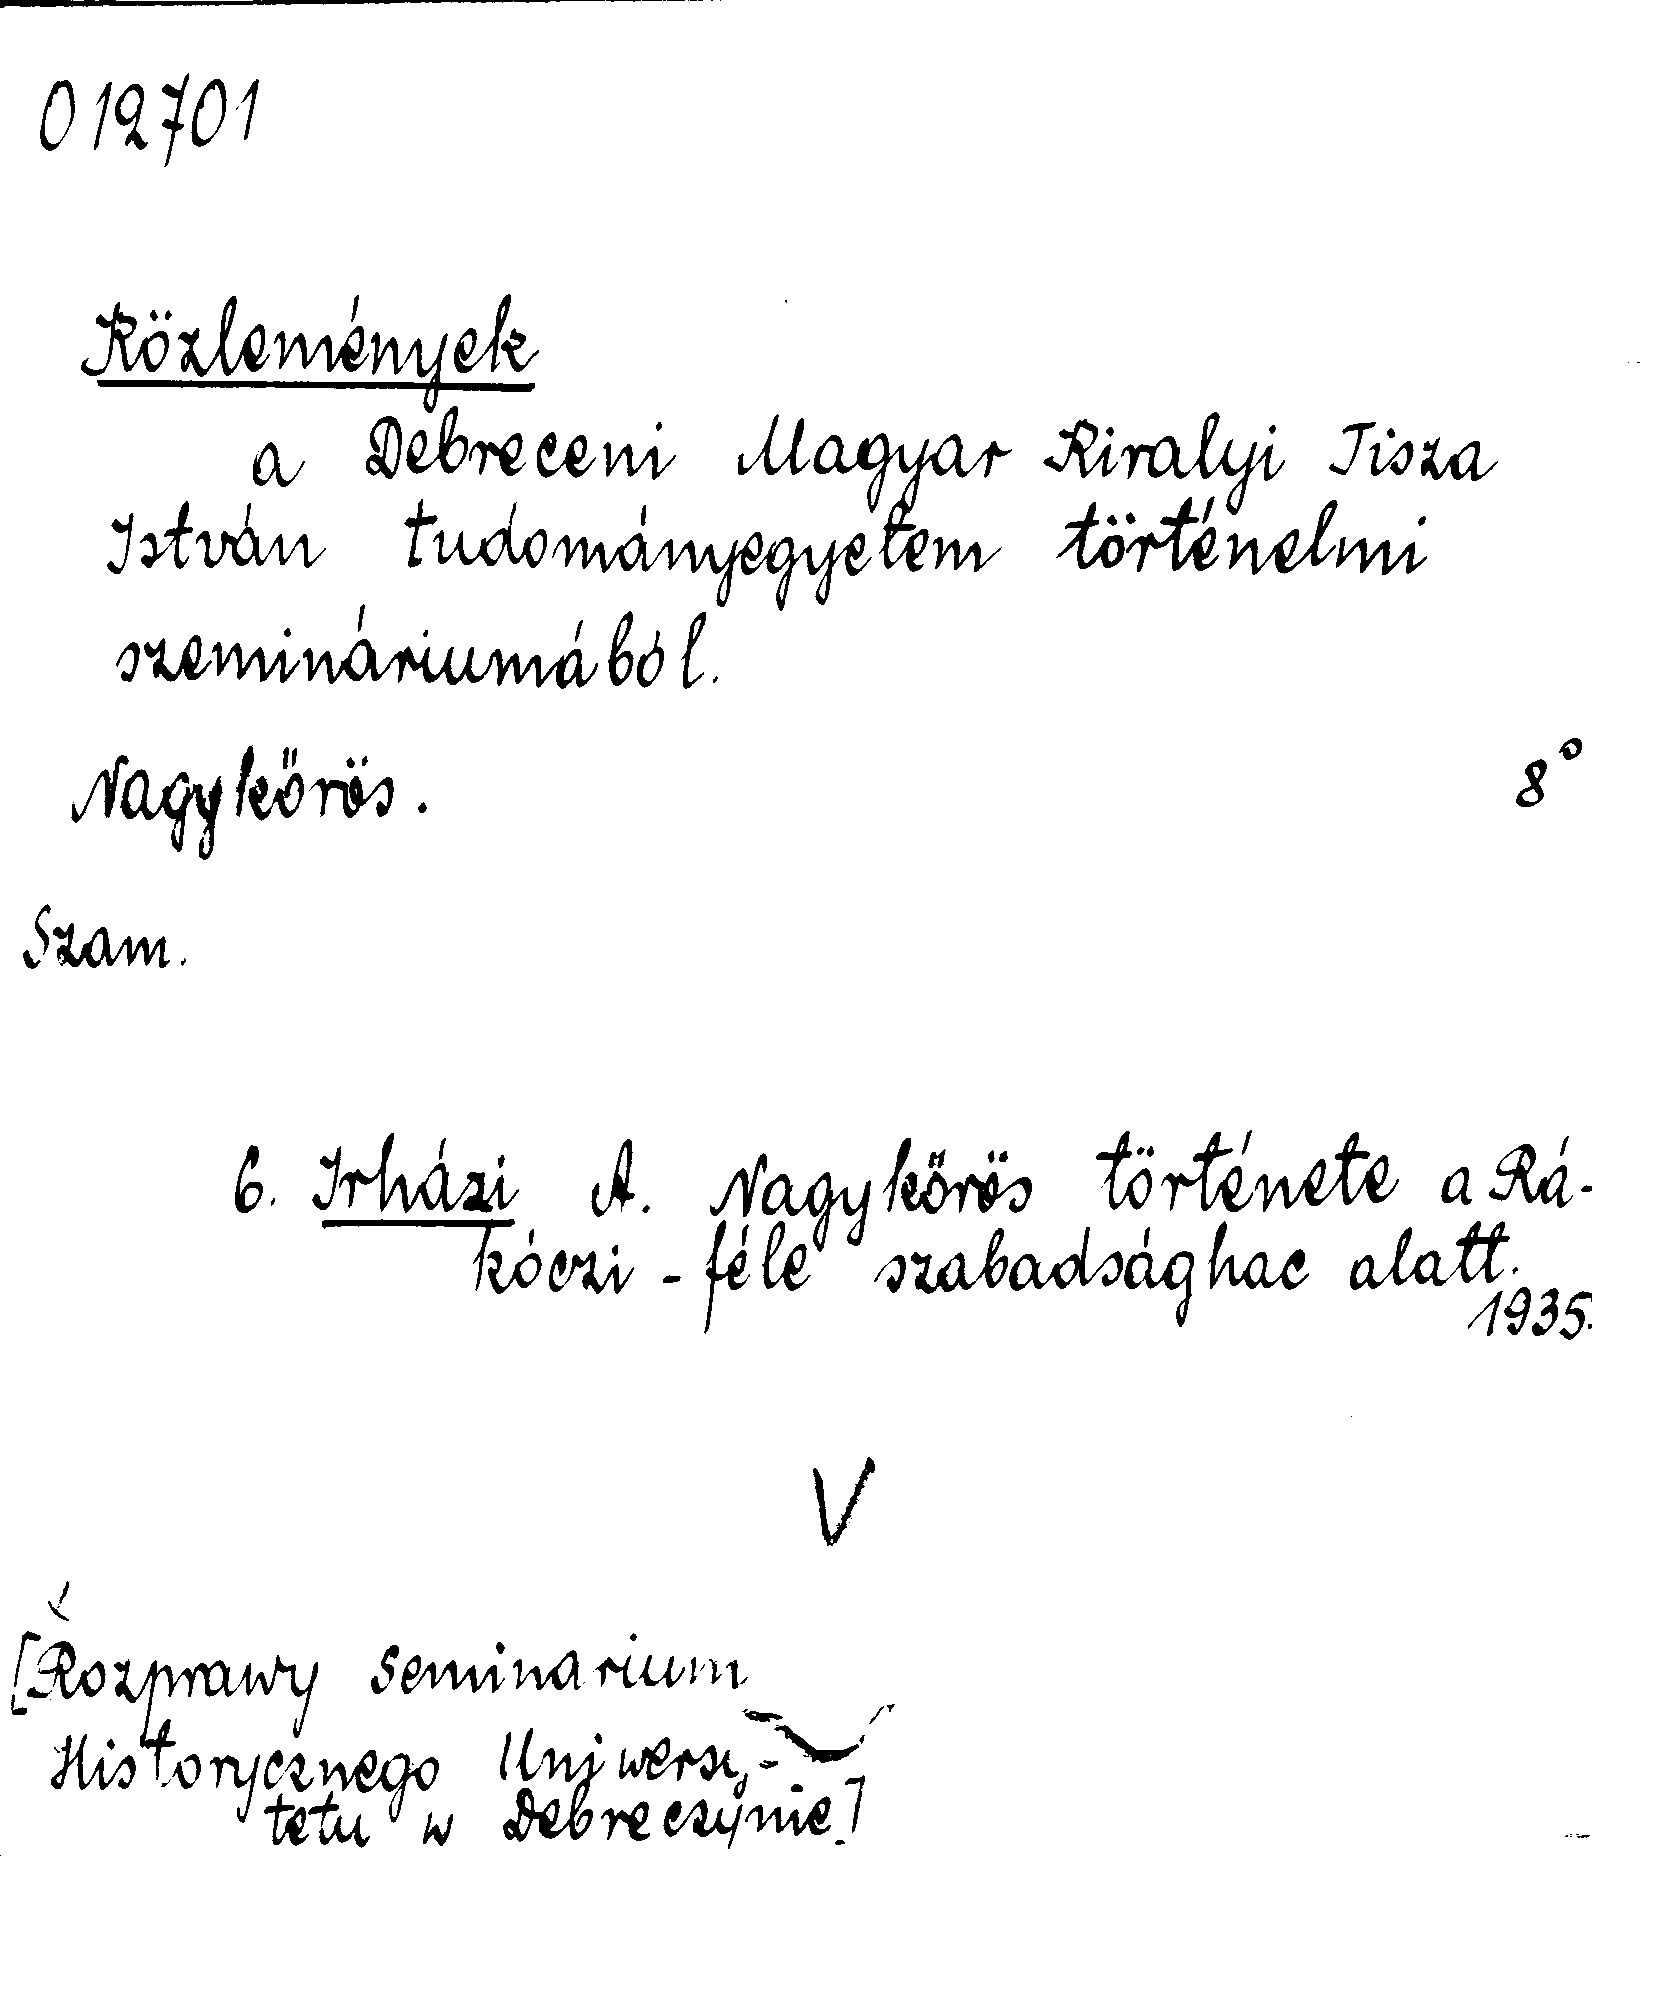 012701
Közlemények
a Debreceni Magyar Kiralyi Tisza
István tudományegyetem történelmi
szemináriumából.
Nagykőrös. 8°
Szam.
6. Irházi A. Nagykőrös története a Rá-
kóczi-féle szabadsághac alatt.
1935.
V
[Rozprawy Seminarium
Historycznego Uniwersy-
tetu w Debreczynie.]